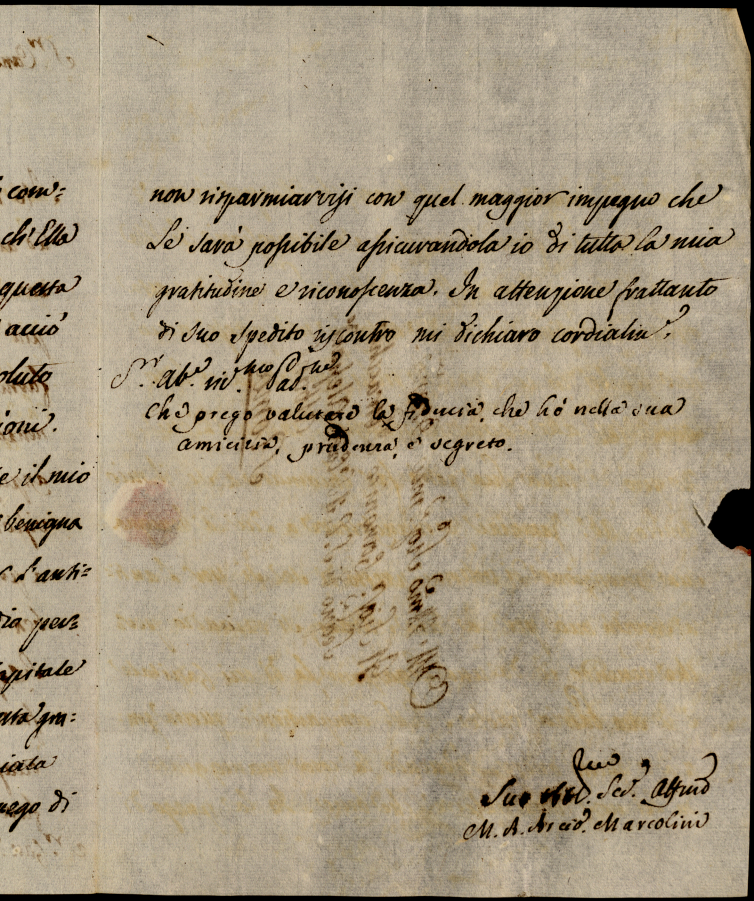 com=
ch'Ella
questa
acciò
oluto
ioni.
e il mio
benigna
l'anti=
dia per=
apitale
ata gra=
iata
prego di
non risparmiarvisi con quel maggior impegno che
Le sarà possibile assicurandola io di tutta la mia
gratitudine e riconoscenza. In attenzione frattanto
di suo spedito riscontro mi dichiaro cordialm.e
S.r Ab.e riv.mo Pad.ne
Che prego valutare la fiducia, che hó nella sua
amicizia, prudenza, e segreto.
Suo Ser.
M. A. Arcid. Marcolini